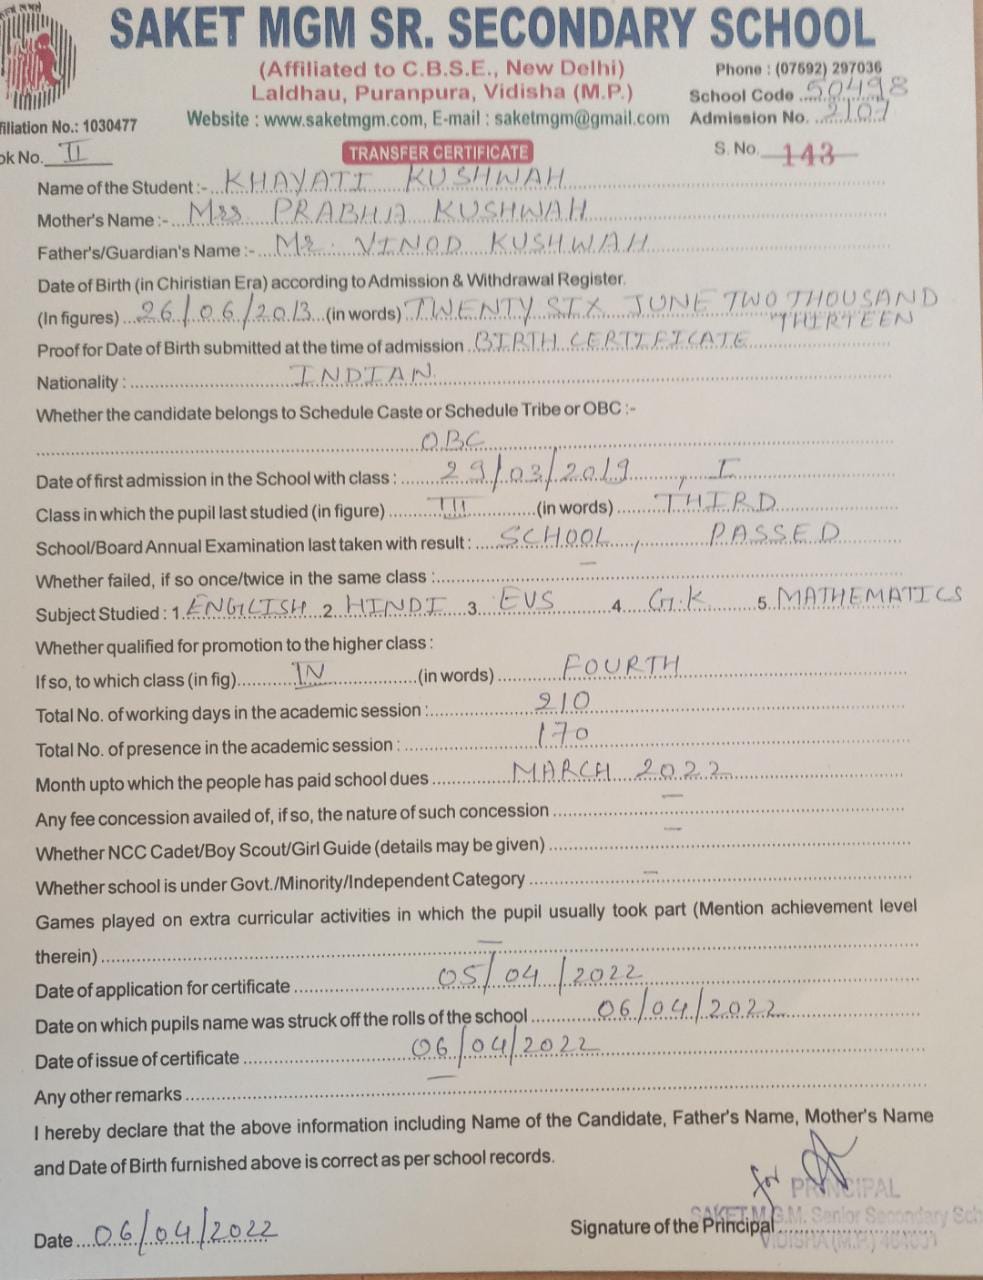 SAKET MGM SR. SECONDARY SCHOOL
(Affiliated to C.B.S.E., New Delhi)
Phone : (07592) 297036
Laldhau, Puranpura, Vidisha (M.P.)
School Code ..... 50498
filiation No.: 1030477
Website : www.saketmgm.com, E-mail : saketmgm@gmail.com
Admission No. ..... 2107
ok No. II
TRANSFER CERTIFICATE
S. No. 143
Name of the Student :- KHAYATI KUSHWAH
Mother's Name :- Mrs PRABHA KUSHWAH
Father's/Guardian's Name :- Mr. VINOD KUSHWAH
Date of Birth (in Chiristian Era) according to Admission & Withdrawal Register.
(In figures) 26/06/2013 (in words) TWENTY SIX JUNE TWO THOUSAND
THIRTEEN
Proof for Date of Birth submitted at the time of admission BIRTH CERTIFICATE
Nationality : INDIAN
Whether the candidate belongs to Schedule Caste or Schedule Tribe or OBC :-
OBC
Date of first admission in the School with class : 29/03/2019, I
Class in which the pupil last studied (in figure) III (in words) THIRD
School/Board Annual Examination last taken with result : SCHOOL, PASSED
Whether failed, if so once/twice in the same class : —
Subject Studied : 1. ENGLISH 2. HINDI 3. EVS 4. G.K 5. MATHEMATICS
Whether qualified for promotion to the higher class :
If so, to which class (in fig) IV (in words) FOURTH
Total No. of working days in the academic session : 210
Total No. of presence in the academic session : 170
Month upto which the people has paid school dues MARCH 2022
Any fee concession availed of, if so, the nature of such concession —
Whether NCC Cadet/Boy Scout/Girl Guide (details may be given) —
Whether school is under Govt./Minority/Independent Category —
Games played on extra curricular activities in which the pupil usually took part (Mention achievement level
therein) —
Date of application for certificate 05/04/2022
Date on which pupils name was struck off the rolls of the school 06/04/2022
Date of issue of certificate 06/04/2022
Any other remarks —
I hereby declare that the above information including Name of the Candidate, Father's Name, Mother's Name
and Date of Birth furnished above is correct as per school records.
for PRINCIPAL
SAKET M.G.M. Senior Secondary Sch
Date 06/04/2022
Signature of the Principal
VIDISHA (M.P.) 464001